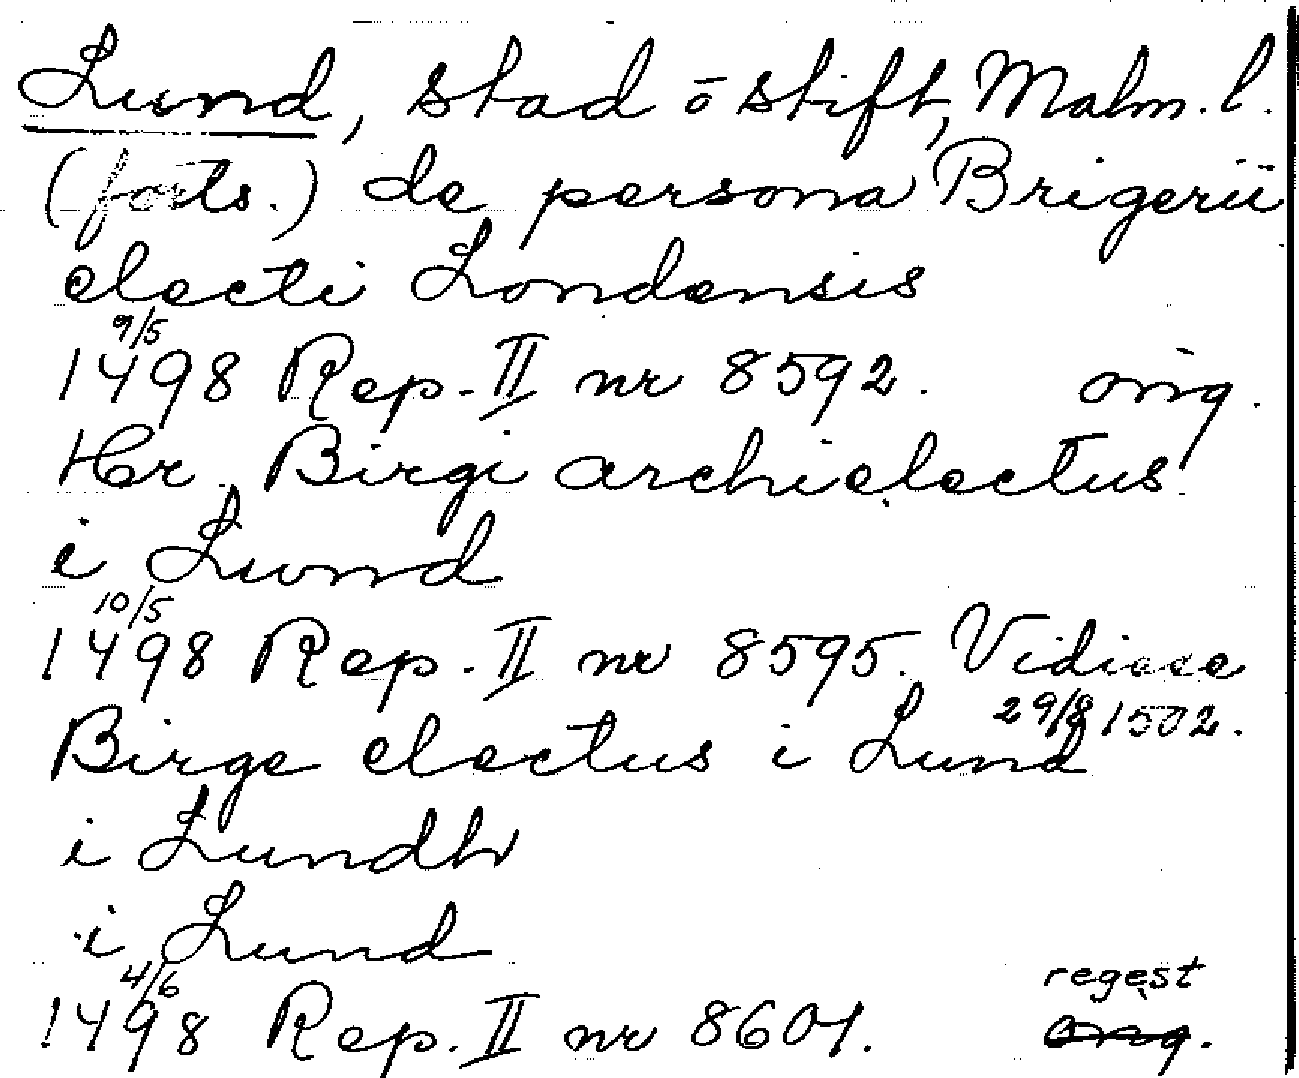 Lund, stad o stift, Malm. l.
(forts.) de persona Brigerii
electi Londensis
9/5
1498 Rep. II nr 8592. orig.
Hr. Birgi archielectus
i Lund
10/5
1498 Rep. II nr 8595. Vidisse
29/8 1502.
Birge electus i Lund
i Lundh
i Lund
4/6 regest
1498 Rep. II nr 8601. orig.